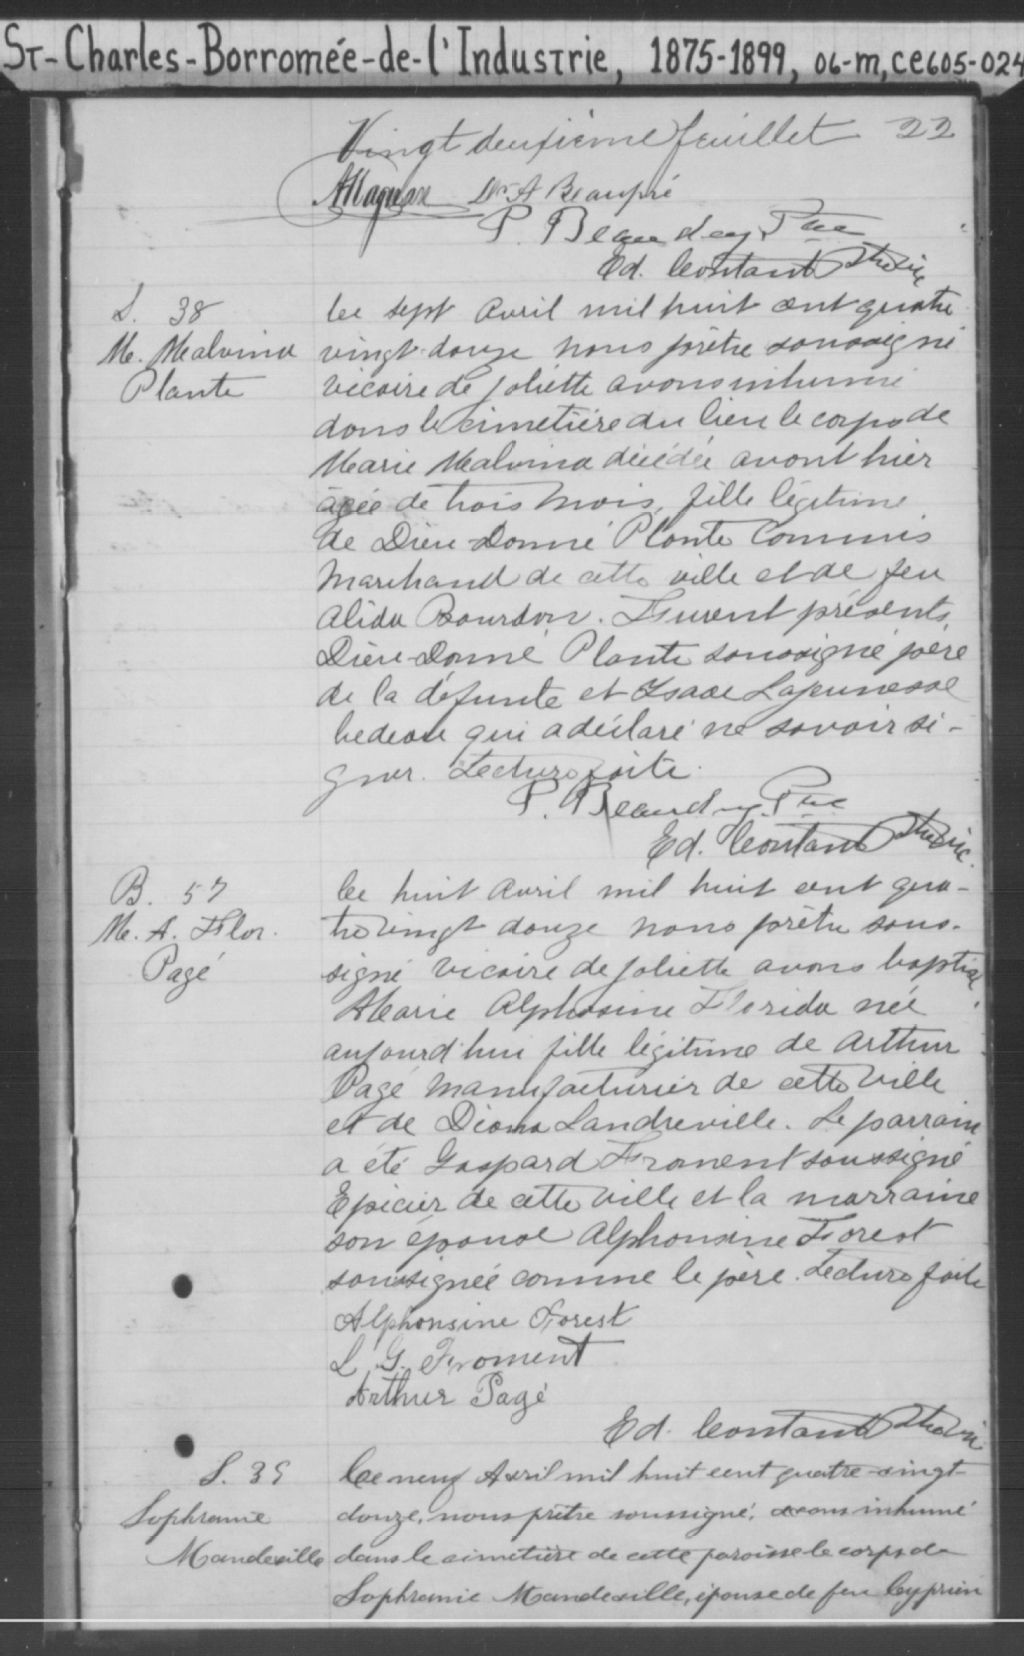 St-Charles-Borromée-de-l'Industrie, 1875-1899, 06-m,ce605-024
Vingt deuxième feuillet 22
Dr A Beaupré
P. Beaudry Ptre
Ed. Contant Ptre Vic
S. 38
M. Malvina
Plante
Ce sept Avril mil huit cent quatre
vingt-douze nous prêtre soussigné
vicaire de Joliette avons inhumé
dans le cimetière du lieu le corps de
Marie Malvina décédée avant hier
âgée de trois mois, fille légitime
de Dieu-Donné Plante Commis
Marchand de cette ville et de feu
Alida Bourdon. Furent présents
Dieu-Donné Plante soussigné père
de la défunte et Isaac Lajeunesse
bedeau qui a déclaré ne savoir si-
gner. Lecture faite.
P. Beaudry Ptre
Ed. Contant Ptre Vic.
B. 57
M. A. Flor.
Pagé
Ce huit Avril mil huit cent qua-
tre vingt douze nous prêtre sous-
signé vicaire de Joliette avons baptisé
Marie Alphosine Florida née
aujourd'hui fille légitime de Arthur
Pagé Manufacturier de cette ville
et de Diana Landreville. Le parrain
a été Gaspard Froment soussigné
Epicier de cette ville et la marraine
son épouse Alphonsine Forest
soussignée comme le père. Lecture faite
Alphonsine Forest
L. G. Froment
Arthur Pagé
Ed. Contant Ptre Vic
S. 39
Sophranie
Mandeville
Ce neuf Avril mil huit cent quatre-vingt-
douze, nous prêtre soussigné, avons inhumé
dans le cimetière de cette paroisse le corps de
Sophranie Mandeville, épouse de feu Cyprien